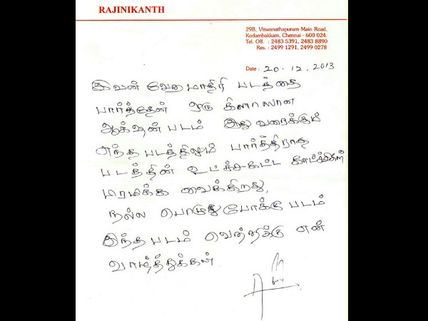 RAJINIKANTH
29B, Viswanathapuram Main Road,
Kodambakkam, Chennai - 600 024.
Tel. Off. : 2483 5391, 2483 8890
Res. : 2499 1291, 2499 0278
Date : 20.12.2013
இவன் வேற மாதிரி படத்தை
பார்த்தேன் ஒரு கிளாஸான
ஆக்ஷன் படம் இது வரைக்கும்
எந்த படத்திலும் பார்த்திராத
படத்தின் உட்சகட்ட காட்சிகள்
பிரமிக்க வைக்கிறது.
நல்ல பொழுதுபோக்கு படம்
இந்த படம் வெற்றிக்கு என்
வாழ்த்துக்கள்.